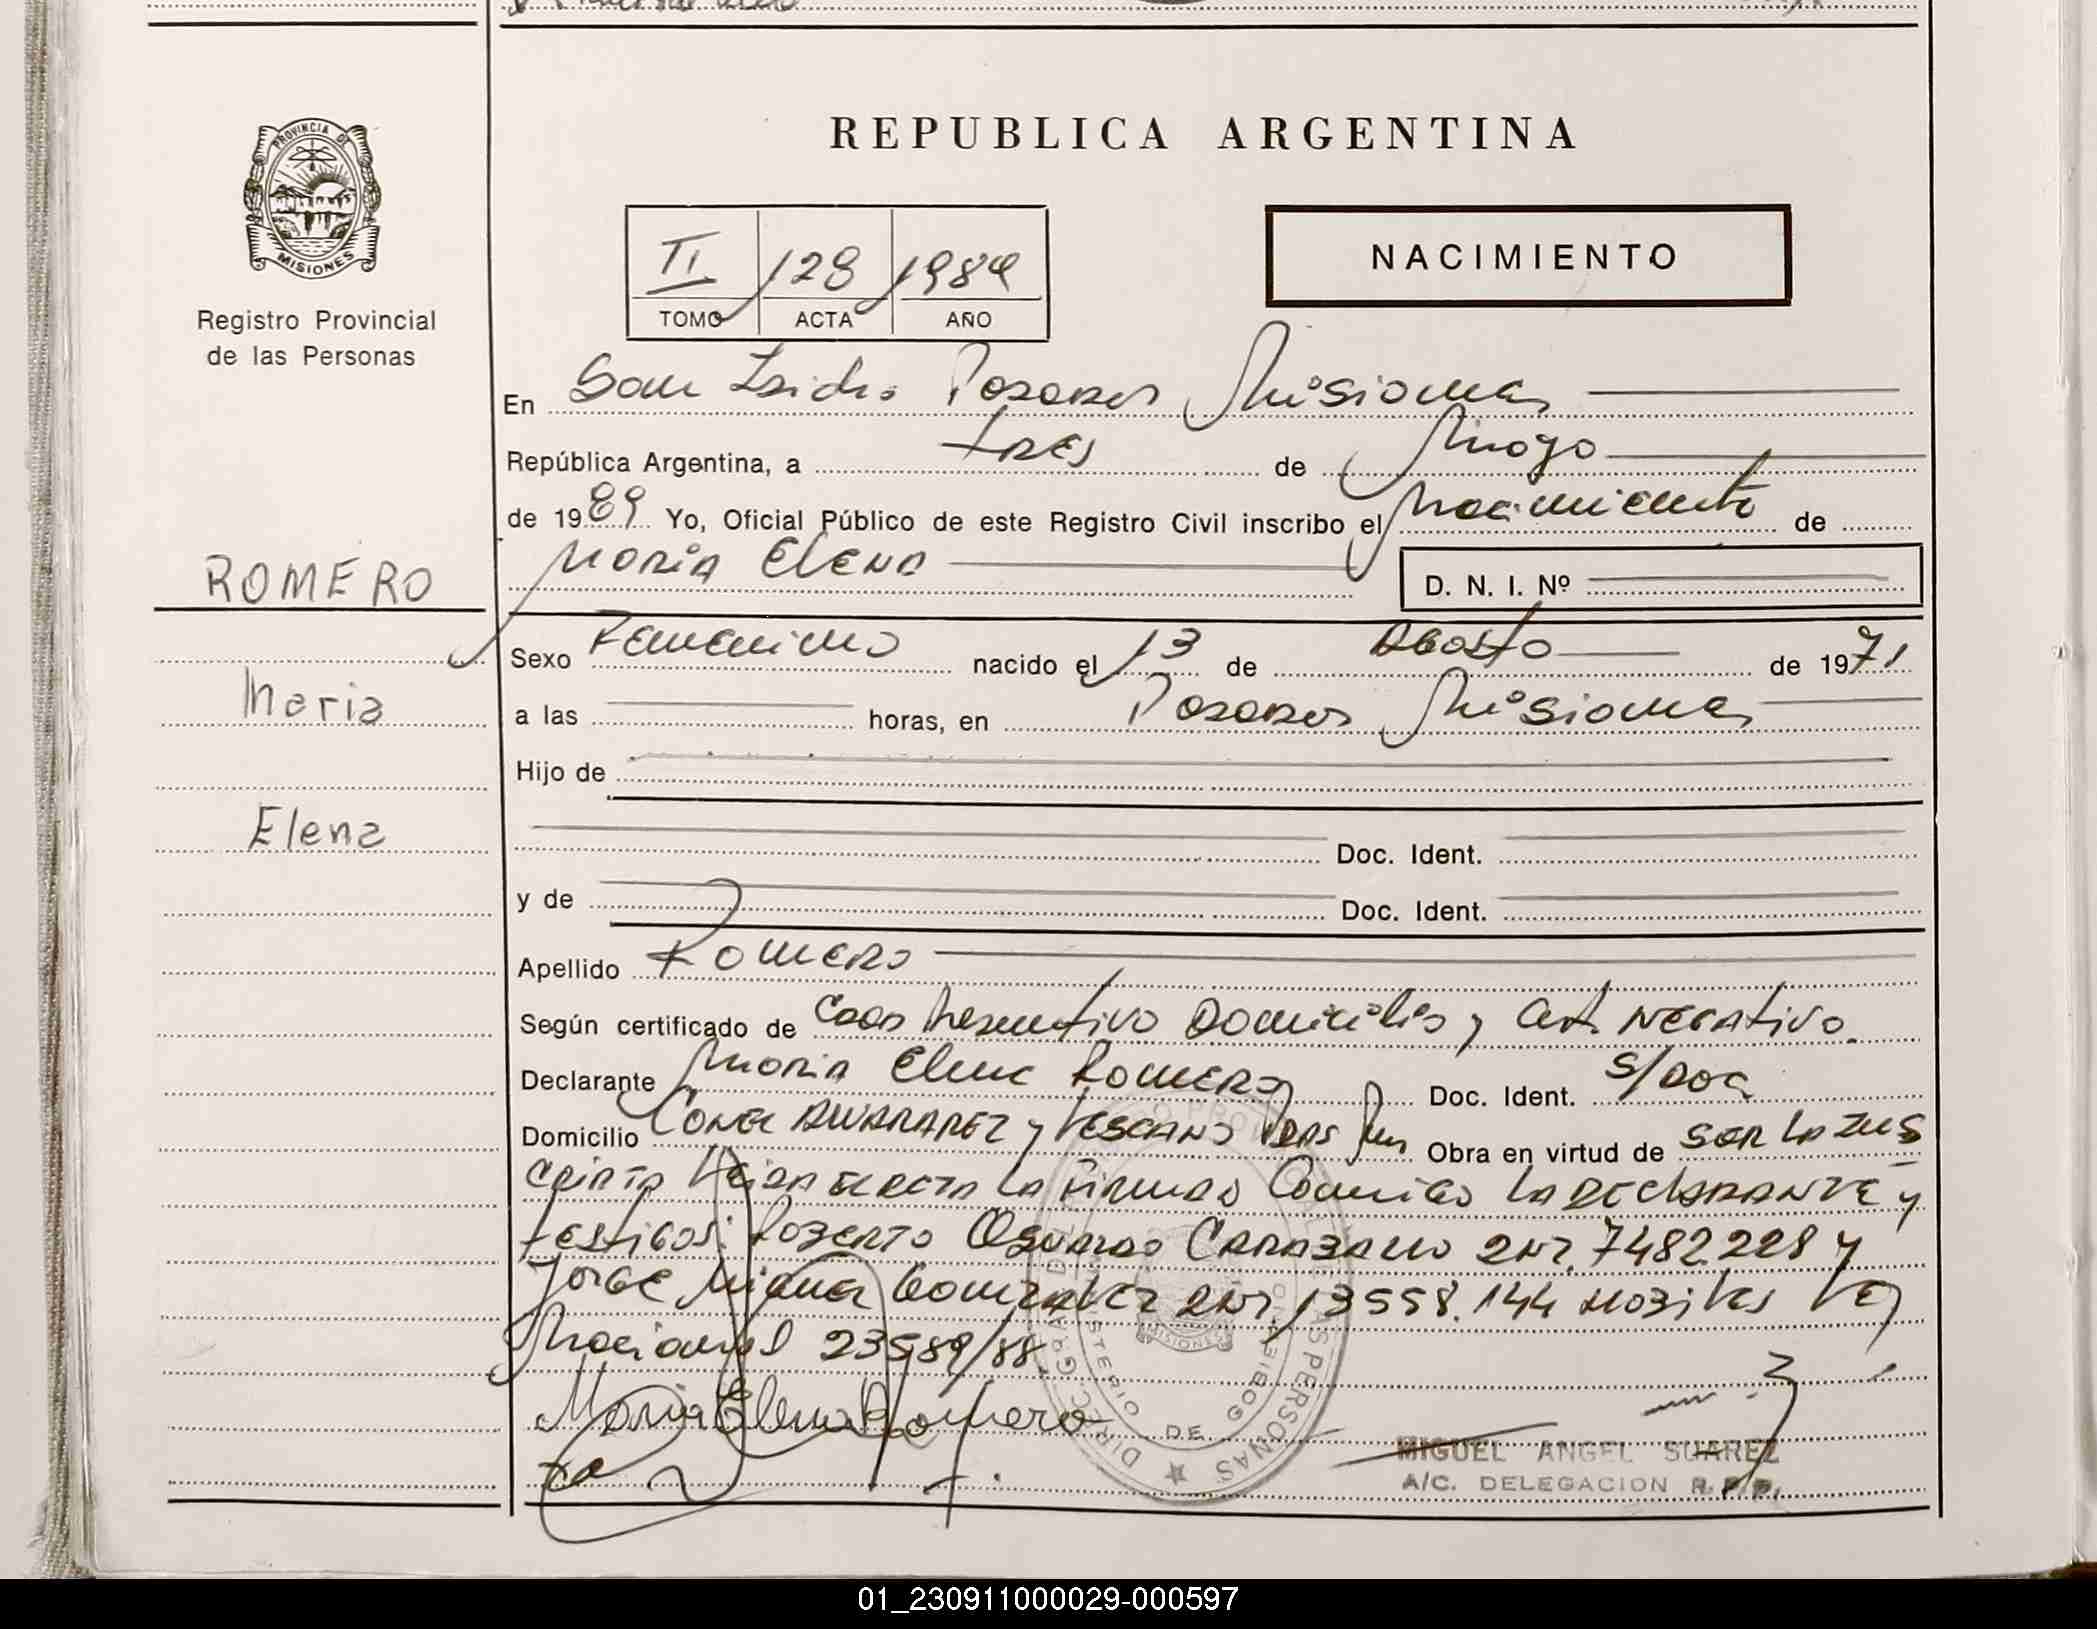 REPUBLICA ARGENTINA
PROVINCIA DE
MISIONES
Registro Provincial
de las Personas
II 128 1989
TOMO ACTA AÑO
NACIMIENTO
En San Isidro Posadas Misiones
República Argentina, a tres de Mayo
de 1989 Yo, Oficial Público de este Registro Civil inscribo el Nacimiento de
Maria Elena D. N. I. Nº
ROMERO
Maria
Elena
Sexo Femenino nacido el 13 de Agosto de 1971
a las horas, en Posadas Misiones
Hijo de
Doc. Ident.
y de Doc. Ident.
Apellido Romero
Según certificado de Domicilio y Cert. Negativo.
Declarante Maria Elena Romero Doc. Ident. S/Doc
Domicilio y Lescano Obra en virtud de ser la ins
cripta la firman Conmigo la declarante y
testigos: Roberto Osvaldo 7482228 y
Jorge Miguel Gonzalez 13558.144 Ley
Nacional 23589/88
Maria Elena Romero
DIREC. GRAL DEL REGISTRO PROVINCIAL DE LAS PERSONAS
MINISTERIO DE GOBIERNO
MISIONES
MIGUEL ANGEL SUAREZ
A/C. DELEGACION R.P.P.
01_230911000029-000597